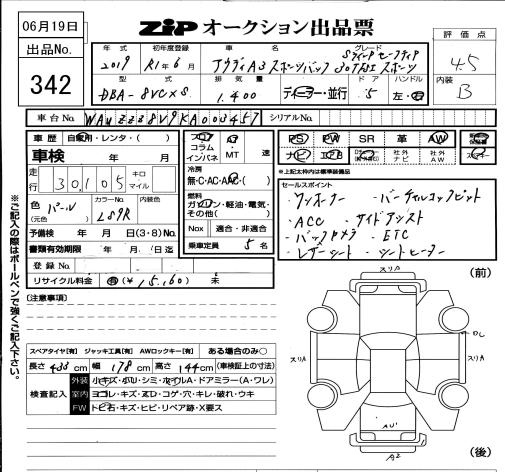 06月19日
ZIP オークション出品票
出品No.
342
評価点
4.5
内装
B
年式
2019
初年度登録
R1年6月
車名
アウディA3 スポーツバック 30TFSI スポーツ
グレード
型式
DBA-8VCXS
排気量
1.400
ドア
5
ハンドル
左・右
ディーラー・並行
車台No.
WAUZZZ8V9KA003457
シリアルNo.
車歴
自家用・レンタ・( )
車検
年 月
走行
30,105
キロ
マイル
色
(元色)
パール
カラーNo.
LS9R
内装色
予備検 年 月 日(3・8)No.
書類有効期限 年 月 日迄
登録No.
リサイクル料金
有(¥15,160)
未
フロア
コラム
インパネ
AT
MT
速
冷房
無・C・AC・AAC・( )
燃料
ガソリン・軽油・電気・
その他( )
Nox
適合・非適合
乗車定員
5名
PS
PW
SR
革
AW
ナビ
エアB
社外
ナビ
社外
AW
保証書
*上記太枠内は標準装備品
セールスポイント
・ワンオーナー ・バーチャルコックピット
・ACC ・サイドアシスト
・バックカメラ ・ETC
・レザーシート ・シートヒーター
(注意事項)
スペアタイヤ[有] ジャッキ工具[有] AWロックキー[有] ある場合のみ○
長さ 433 cm 幅 178 cm 高さ 144 cm (車検証の寸法)
検査記入
外装
小キズ・小U・シミ・ホイルA・ドアミラー(A・ワレ)
室内
ヨゴレ・キズ・スD・コゲ・穴・キレ・破れ・ウキ
FW
トビ石・キズ・ヒビ・リペア跡・X要ス
※ご記入の際はボールペンで強くご記入下さい。
(前)
スリA
スリA
スリA
A2
(後)